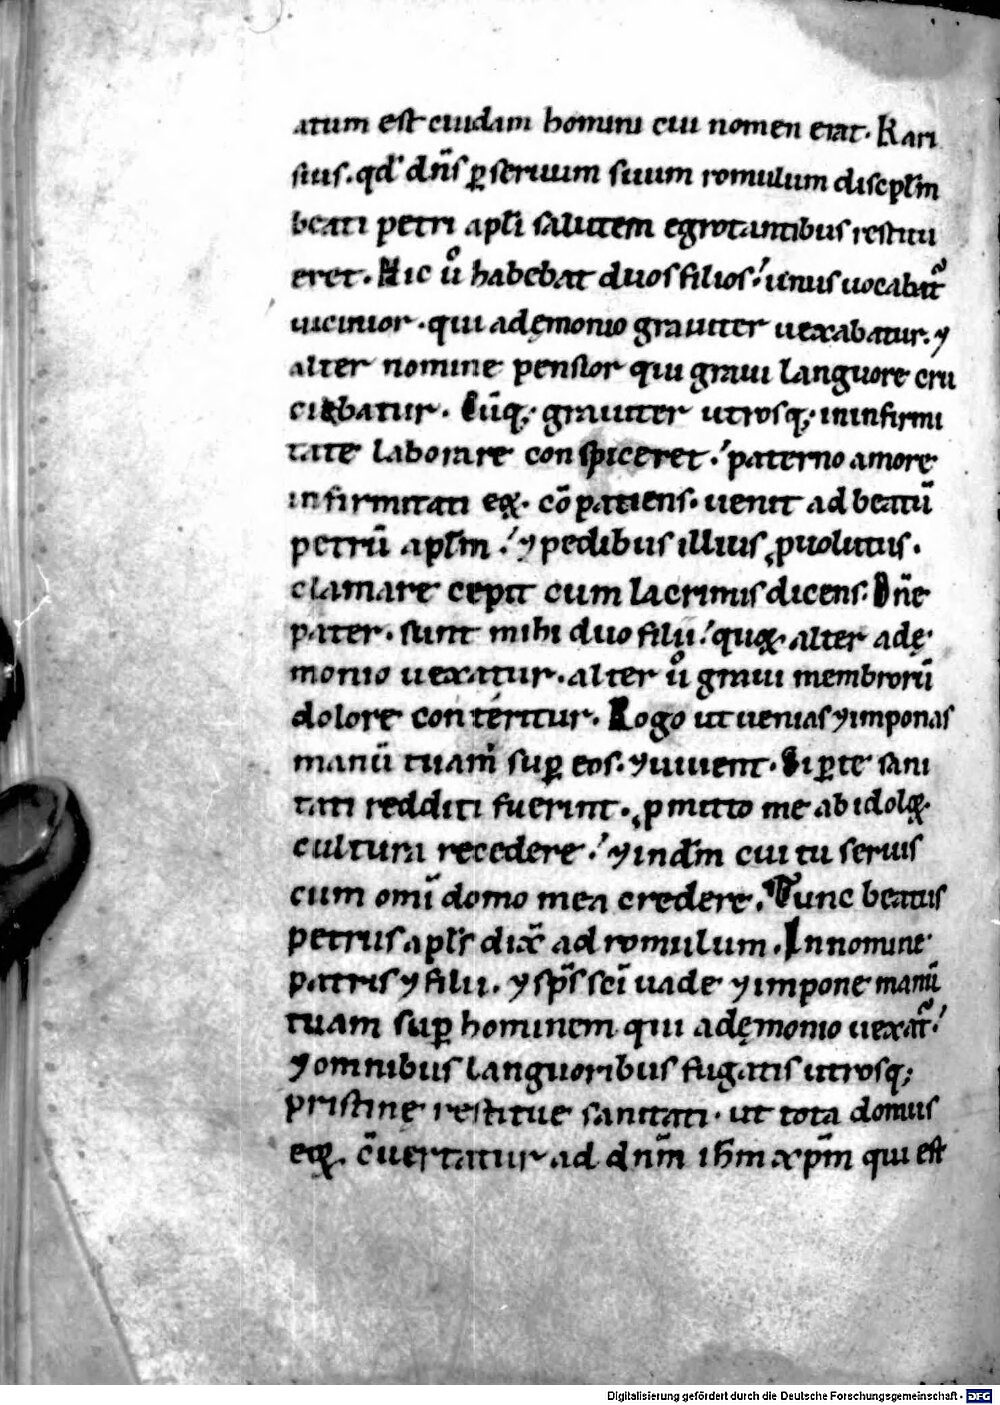 atum est cuidam homini cui nomen erat. Kari
sius. qd' dn̄s ꝑ seruum suum romulum discpl̄m
beati petri apl̄i salutem egrotantibus restitu
eret. Hic ů habebat duos filios.' unus uocabat᷑
uicinior. qui ademonio grauiter uexabatur. ⁊
alter nomine penstor qui graui languore cru
ciabatur. Cūq; grauiter utrosq; ininfirmi
tate laborare conspiceret.' paterno amore
infirmitati eoꝝ. cōpatiens. uenit ad beatū
petrū apl̄m.' ⁊ pedibus illius ꝓuolutus.
clamare cepit cum lacrimis dicens. Dn̄e
pater. sunt mihi duo filii.' quoꝝ. alter adę
monio uexatur. alter ů graui membrorū
dolore conteritur. Rogo ut uenias ⁊imponas
manū tuam suꝑ eos. ⁊uiuent. Si ꝑ te sani
tati redditi fuerint. ꝓmitto me ab idoloꝝ.
cultura recedere.' ⁊indn̄m cui tu seruis
cum omī domo mea credere. Tunc beatus
petrus apl̄s dix̄ ad romulum. In nomine
patris ⁊ filii. ⁊ sps̄ scī uade ⁊impone manū
tuam suꝑ hominem qui adęmonio uexat᷑.'
⁊omnibus languoribus fugatis utrosq;
pristinę restitue sanitati. ut tota domus
eoꝝ. c̄uertatur ad dnm̄ ihm̄ xpm̄ qui est
Digitalisierung gefördert durch die Deutsche Forschungsgemeinschaft - DFG